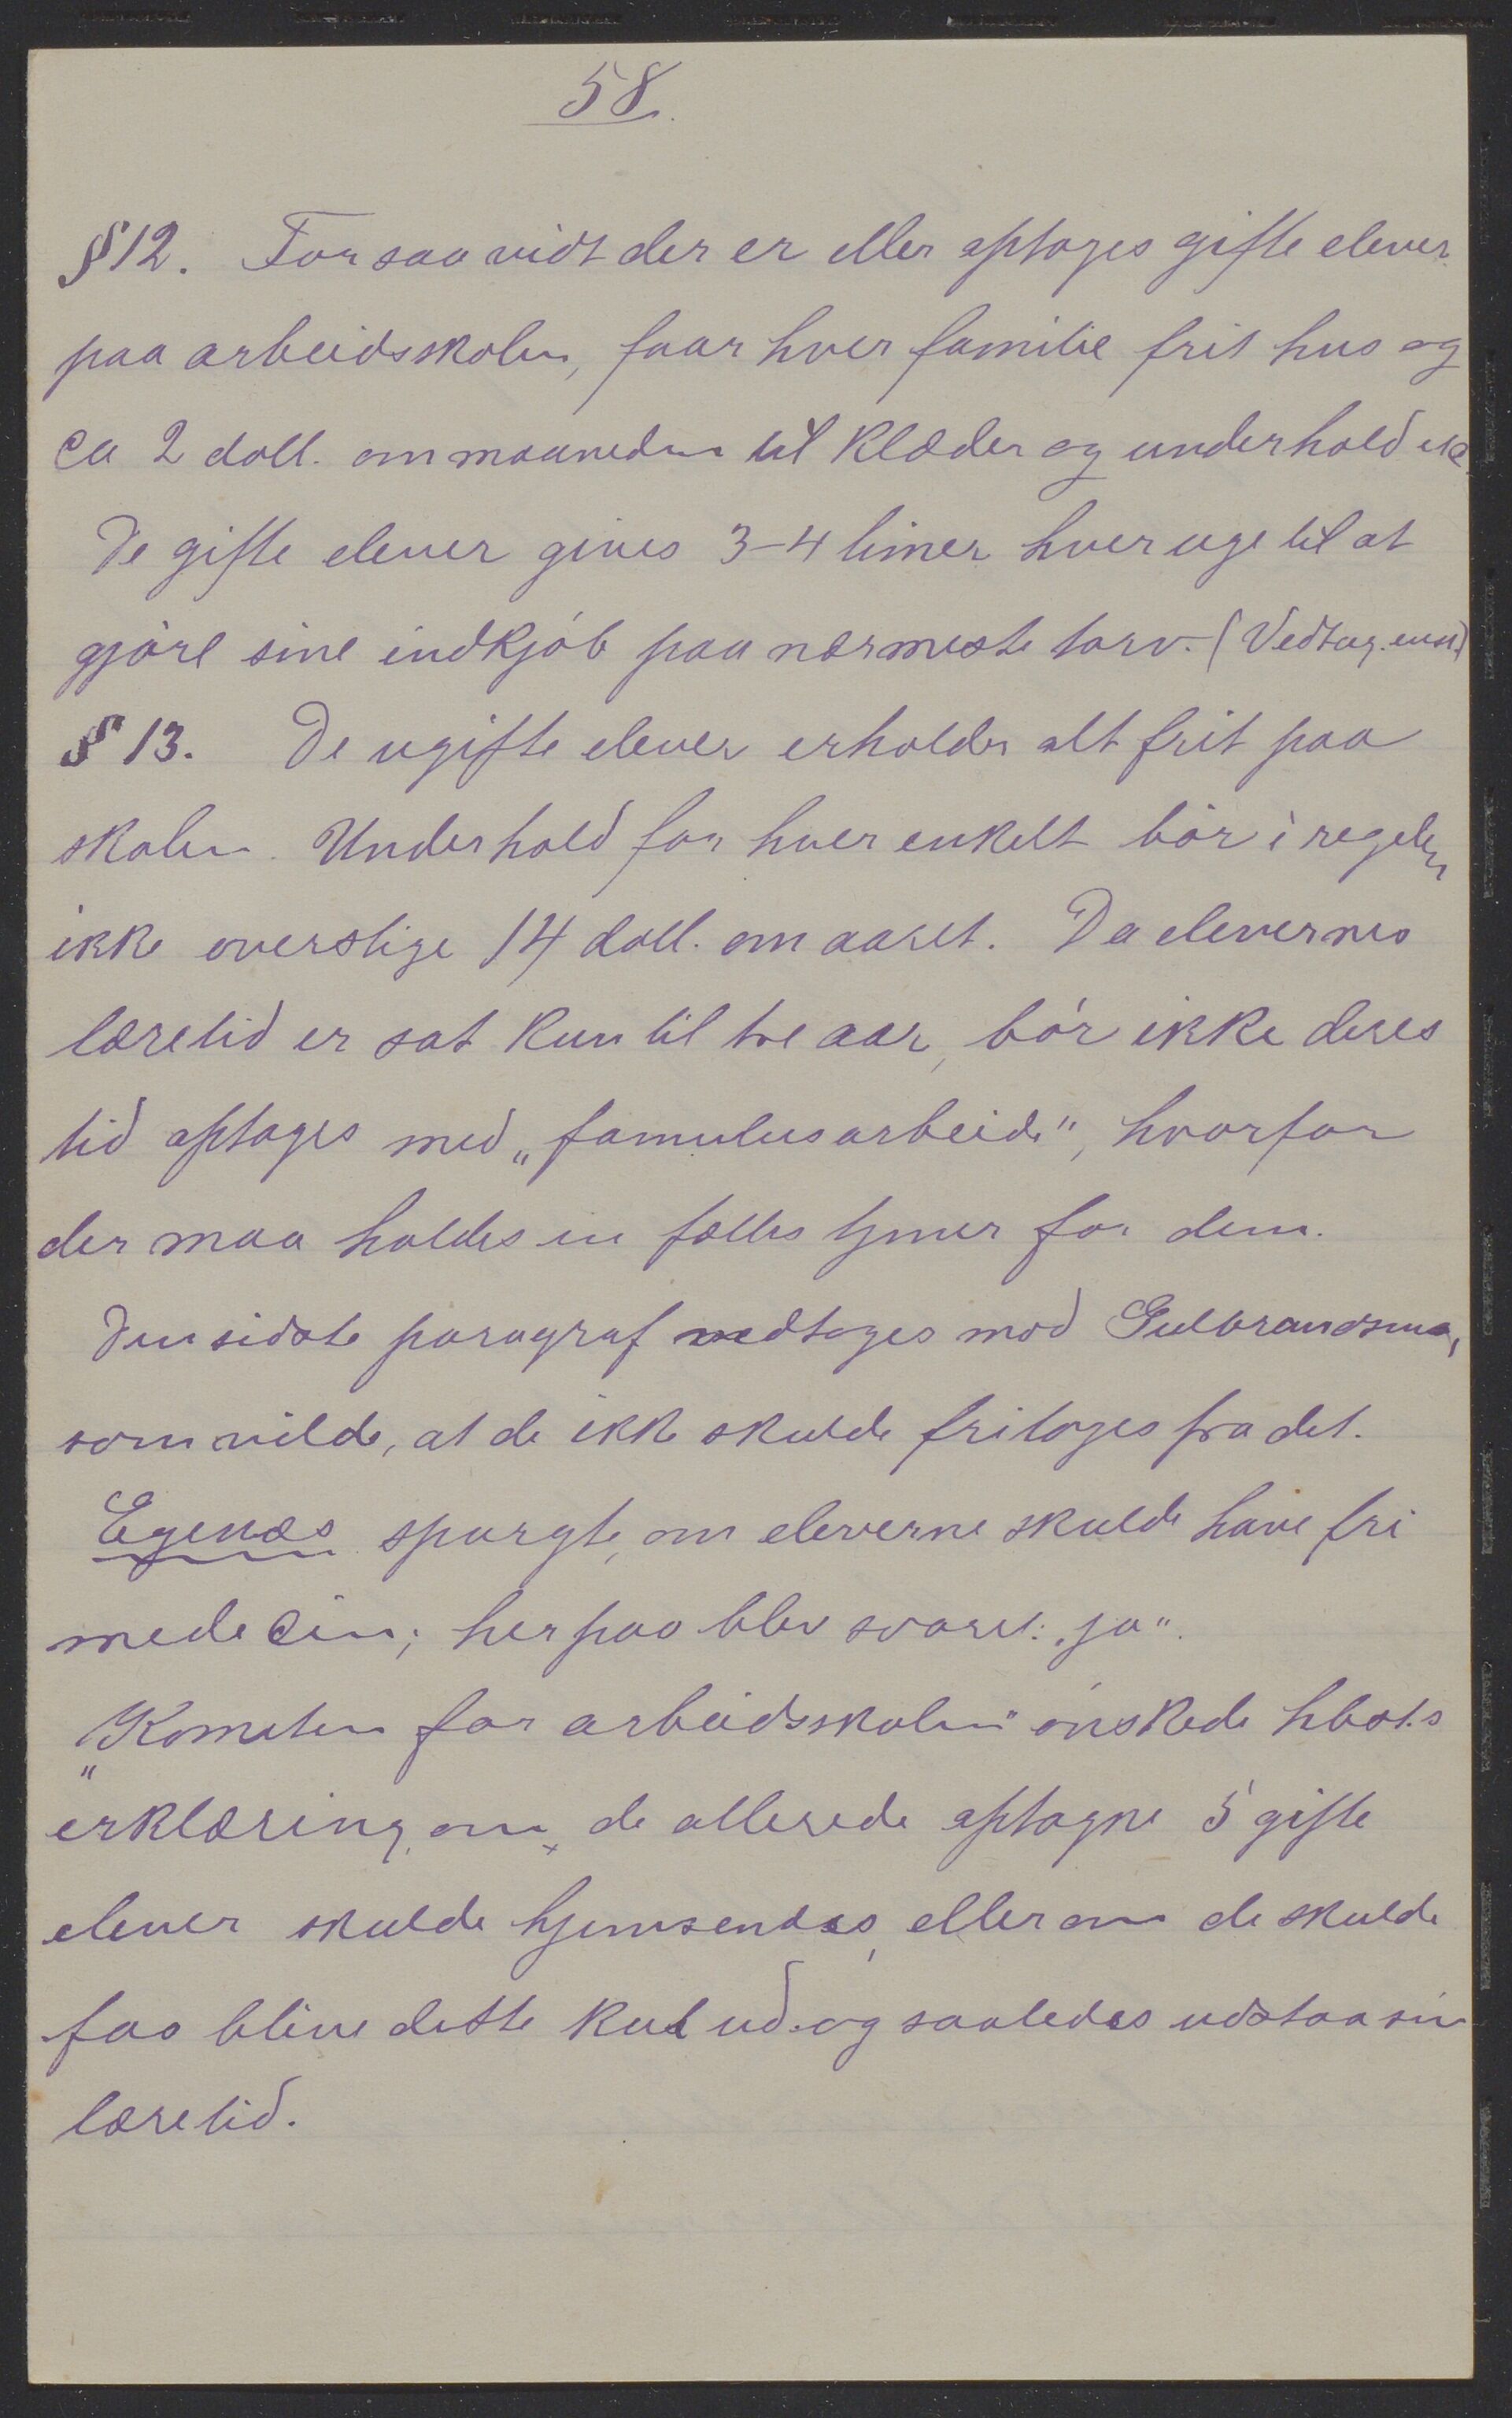 58.
§ 12. Forsaavidt der er eller optages gifte elever
paa arbeidsskolen, faar hver familie frit hus og
ca 2 doll. om maaneden til klæder og underhold etc.
De gifte elever gives 3-4 timer hver uge til at
gjöre sine indkjöb paa nærmeste torv. (Vedtag. enst.)
§ 13. De ugifte elever erholder alt frit paa
skolen. Underhold for hver enkelt bör i regelen
ikke overstige 14 doll. om aaret. Da elevernes
læretid er sat kun til tre aar, bör ikke deres
tid optages med „famulusarbeide", hvorfor
der maa holdes en fælles tjener for dem.
Den sidste paragraf vedtages mod Gulbrandsens,
som vilde, at de ikke skulde fritages fra det.
Egenæs spurgte, om eleverne skulde have fri
medecin; herpaa blev svaret: „ja".
„Komiteen for arbeidsskolen" önskede hbots
erklæring, om de allerede optagne 5 gifte
elever skulde hjemsendes, eller om de skulde
faa blive dette kul ud og saaledes udstaa sin
læretid.